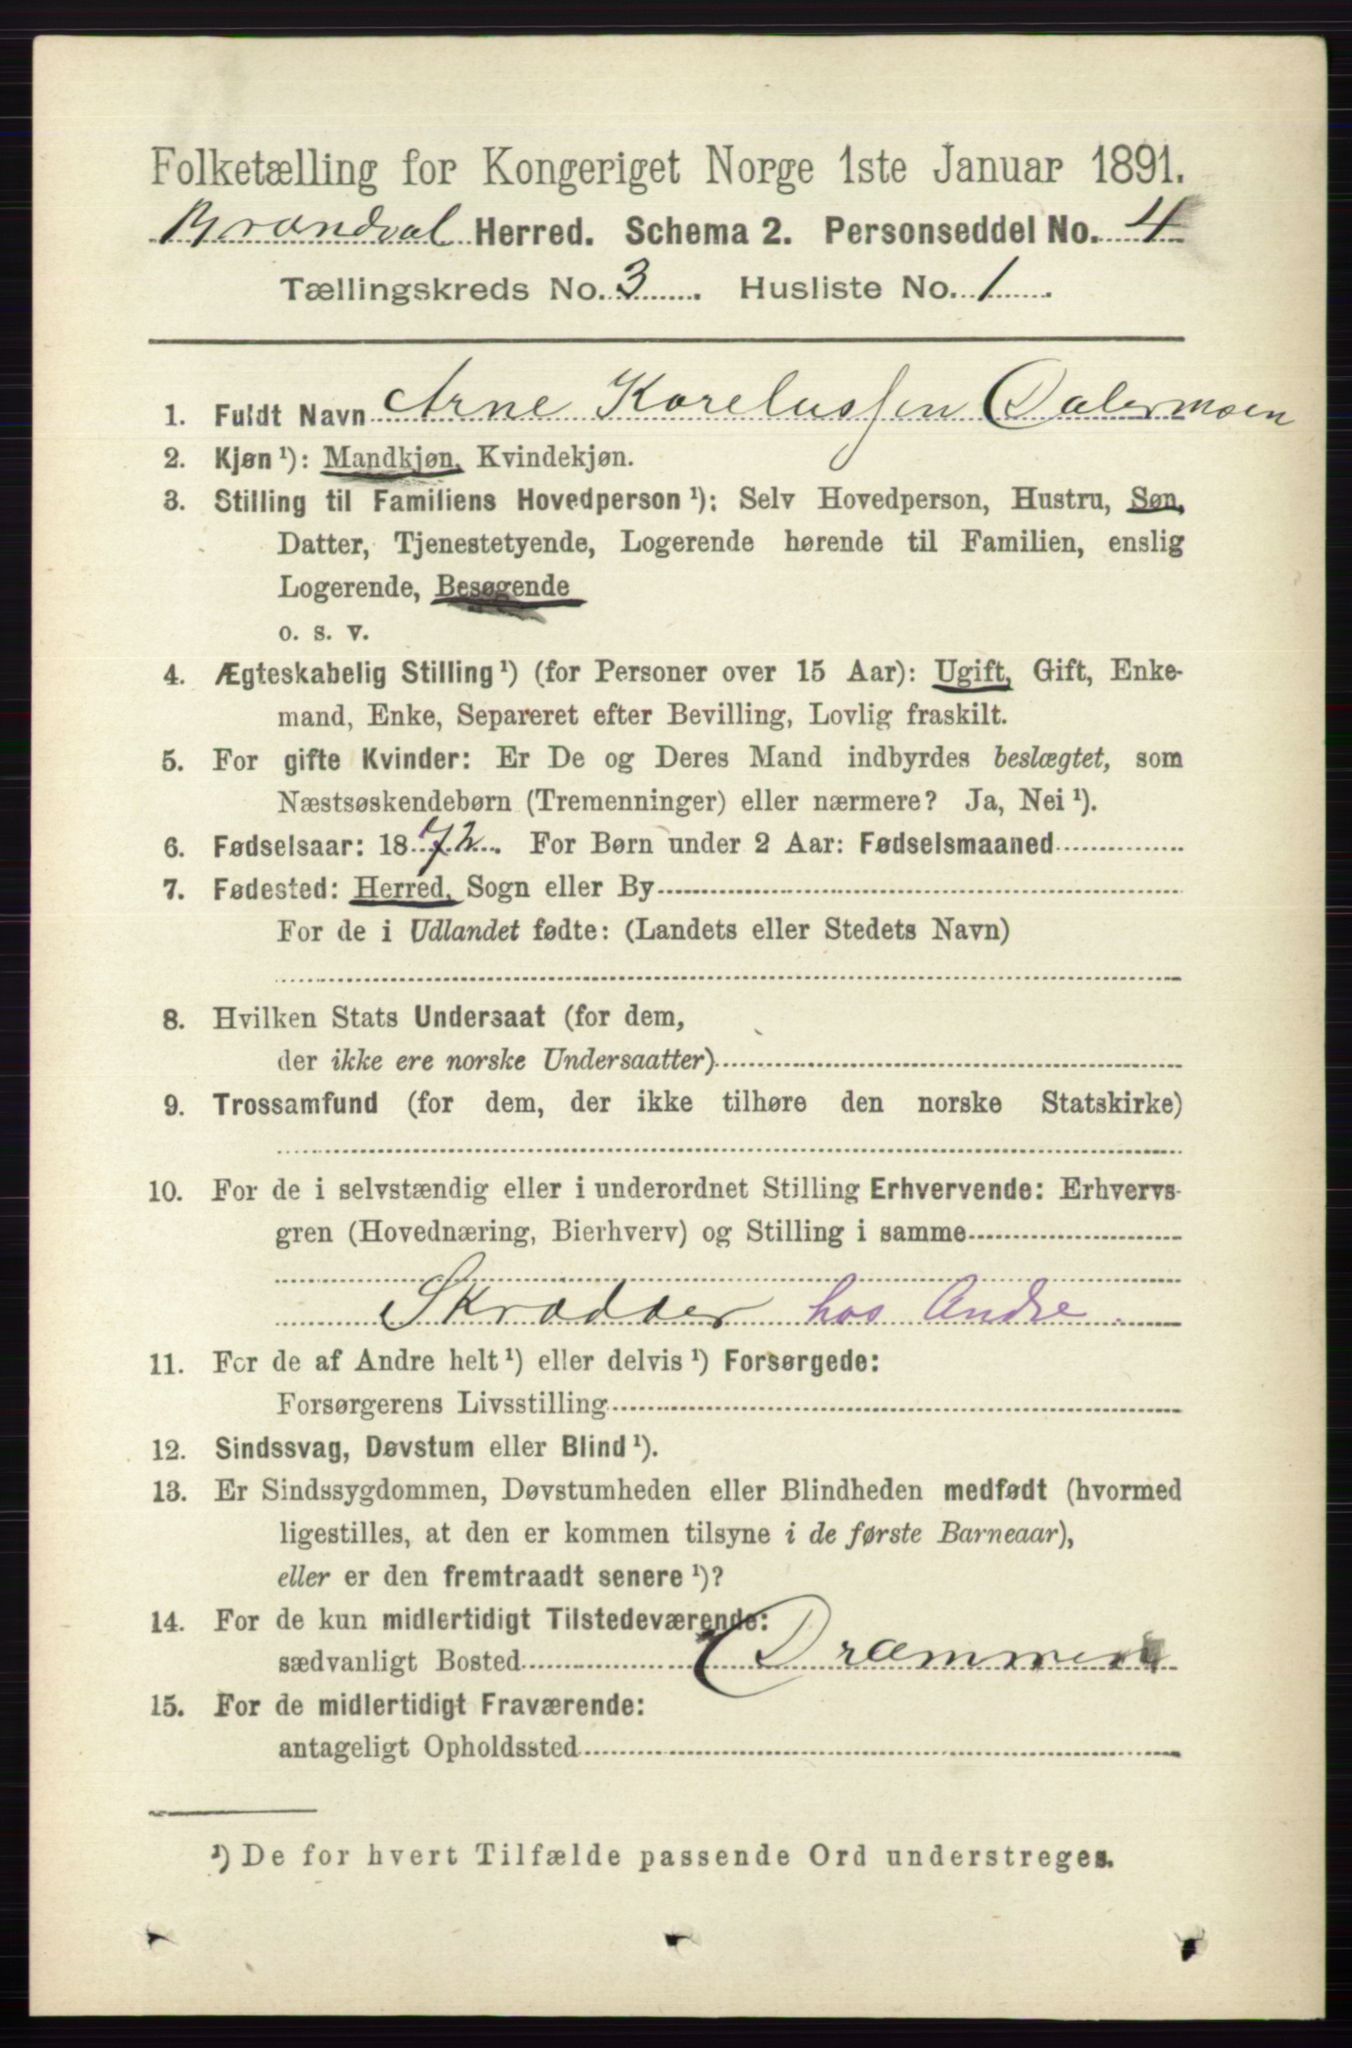 Folketælling for Kongeriget Norge 1ste Januar 1891.
Brandval Herred. Schema 2. Personseddel No. 4
Tællingskreds No. 3. Husliste No. 1.
1. Fuldt Navn Arne Korelussen Dalermoen
2. Kjøn ¹): Mandkjøn, Kvindekjøn.
3. Stilling til Familiens Hovedperson ¹): Selv Hovedperson, Hustru, Søn,
Datter, Tjenestetyende, Logerende hørende til Familien, enslig
Logerende, Besøgende
o. s. v.
4. Ægteskabelig Stilling ¹) (for Personer over 15 Aar): Ugift, Gift, Enke-
mand, Enke, Separeret efter Bevilling, Lovlig fraskilt.
5. For gifte Kvinder: Er De og Deres Mand indbyrdes beslægtet, som
Næstsøskendebørn (Tremenninger) eller nærmere? Ja, Nei ¹).
6. Fødselsaar: 1872. For Børn under 2 Aar: Fødselsmaaned
7. Fødested: Herred, Sogn eller By
For de i Udlandet fødte: (Landets eller Stedets Navn)
8. Hvilken Stats Undersaat (for dem,
der ikke ere norske Undersaatter)
9. Trossamfund (for dem, der ikke tilhøre den norske Statskirke)
10. For de i selvstændig eller i underordnet Stilling Erhvervende: Erhvervs-
gren (Hovednæring, Bierhverv) og Stilling i samme
Skrædder hos Andre.
11. For de af Andre helt ¹) eller delvis ¹) Forsørgede:
Forsørgerens Livsstilling
12. Sindssvag, Døvstum eller Blind ¹).
13. Er Sindssygdommen, Døvstumheden eller Blindheden medfødt (hvormed
ligestilles, at den er kommen tilsyne i de første Barneaar),
eller er den fremtraadt senere ¹)?
14. For de kun midlertidigt Tilstedeværende:
sædvanligt Bosted Drammen
15. For de midlertidigt Fraværende:
antageligt Opholdssted
¹) De for hvert Tilfælde passende Ord understreges.